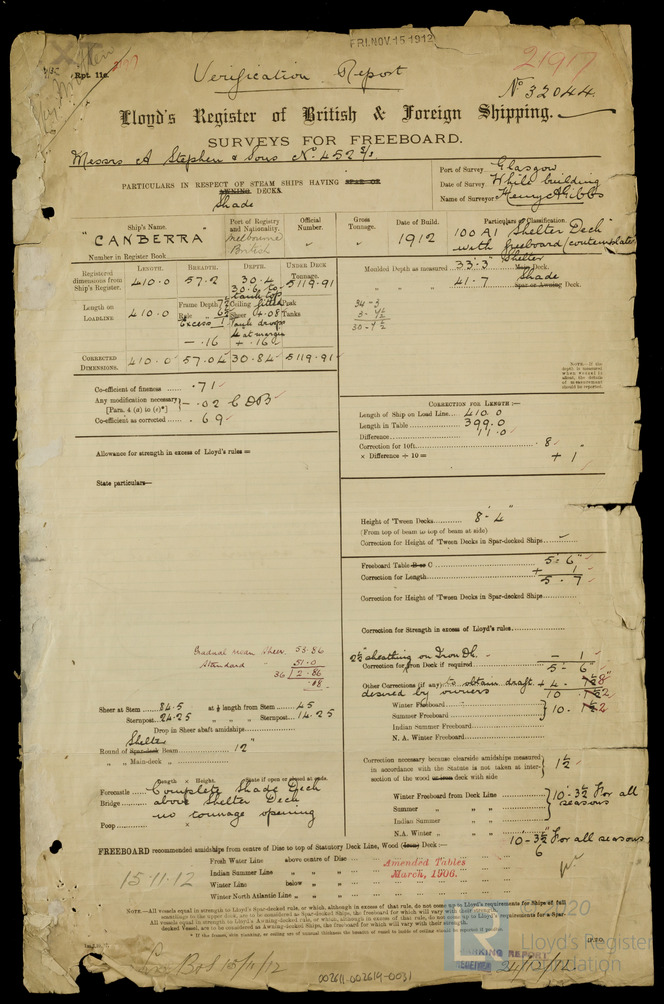 FRI. NOV. 15 1912
21917
Rpt. 11c.
Verification Report
No 32044
Lloyd's Register of British & Foreign Shipping.
SURVEYS FOR FREEBOARD.
Messrs A Stephen & Sons No. 452 S/s
PARTICULARS IN RESPECT OF STEAM SHIPS HAVING SPAR OR
AWNING DECKS.
Shade
Port of Survey Glasgow
Date of Survey Whilst building
Name of Surveyor Henry A Gibbs
Ship's Name.
"CANBERRA"
Number in Register Book
Port of Registry and Nationality.
Melbourne
British
Official Number.
Gross Tonnage.
Date of Build.
1912
Particulars of Classification.
100 A1 Shelter Deck
with freeboard (contemplated)
Registered dimensions from Ship's Register.
LENGTH. BREADTH. DEPTH. UNDER DECK TONNAGE.
410.0 57.2 30.4 5119.91
30.6 to tank top
Moulded Depth as measured 33'.3" Shelter Main Deck.
" " " 41.7 Shade Spar or Awning Deck.
Length on LOADLINE 410.0
Frame Depth 7½ Ceiling fitted Peak
Rule " 6½ Sheer 4.08 Tanks
Excess 1 Tank drops
4 at margin
- .16 + .16
34-3
3-4½
30-7½
CORRECTED DIMENSIONS. 410.0 57.04 30.84 5119.91
NOTE.—If the depth is measured when vessel is afloat, the details of measurement should be reported.
Co-efficient of fineness .71
Any modification necessary [Para. 4 (a) to (e)*] - .02 C D B
Co-efficient as corrected .69
CORRECTION FOR LENGTH:—
Length of Ship on Load Line 410.0
Length in Table 399.0
Difference 11.0
Correction for 10ft. .8
× Difference ÷ 10 = + 1
Allowance for strength in excess of Lloyd's rules =
State particulars—
Height of 'Tween Decks 8'-4"
(From top of beam to top of beam at side)
Correction for Height of 'Tween Decks in Spar-decked Ships
Freeboard Table B or C 5-6"
Correction for Length + 1
5-7
Correction for Height of 'Tween Decks in Spar-decked Ships
Correction for Strength in excess of Lloyd's rules
Gradual mean Sheer 53.86
Standard - 51.0
36 | 2.86
.08
2½" sheathing on Iron Dk. - 1
Correction for Iron Deck if required 5-6
Other Corrections (if any) to obtain draft + 4. 8"
desired by owners 10 2
Winter Freeboard
Summer Freeboard 10. 2
Indian Summer Freeboard
N. A. Winter Freeboard
Sheer at Stem 84.5 at ⅛ length from Stem 45
Sternpost 24.25 " " " Sternpost 14.25
Drop in Sheer abaft amidships
Shelter
Round of Spar-deck Beam 12"
" " Main-deck "
Correction necessary because clearside amidships measured in accordance with the Statute is not taken at intersection of the wood or iron deck with side 1½
Length × Height. State if open or closed at ends.
Forecastle Complete Shade Deck
Bridge above Shelter Deck
no tonnage opening
Poop
Winter Freeboard from Deck Line 10'-3½ For all
Summer " " seasons
Indian Summer "
N.A. Winter " 10'-3½" For all seasons
FREEBOARD recommended amidships from centre of Disc to top of Statutory Deck Line, Wood (Iron) Deck:— 6
Fresh Water Line above centre of Disc
Indian Summer Line " " "
Winter Line below " "
Winter North Atlantic Line " " "
Amended Tables
March, 1906.
15-11-12
NOTE.—All vessels equal to Lloyd's Spar-decked rule, or which, although in excess of that rule, do not come up to Lloyd's requirements for Ships of full scantlings to the upper deck, are to be considered as Spar-decked Ships, the freeboard for which will vary with their strength.
All vessels equal in strength to Lloyd's Awning-decked rule, or which, although in excess of that rule, do not come up to Lloyd's requirements for a Spar-decked Vessel, are to be considered as Awning-decked Ships, the freeboard for which will vary with their strength.
15/11/12
MARKING REPORT
RECEIVED 24/12/12
P.T.O.
002611-002619-0031
© 2020
Lloyd's Register
Foundation
LR